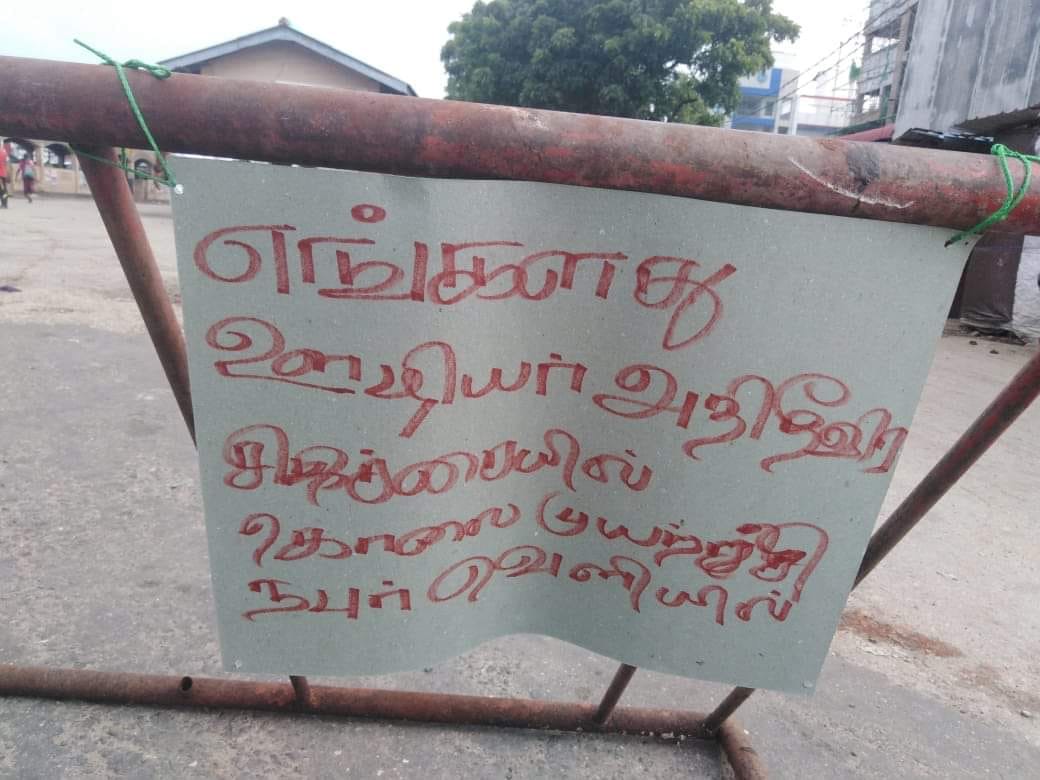 எங்களது
ஊழியர் அதிதீவிர
சிகிச்சையில்
கொலை முயற்சி
நபர் வெளியில்